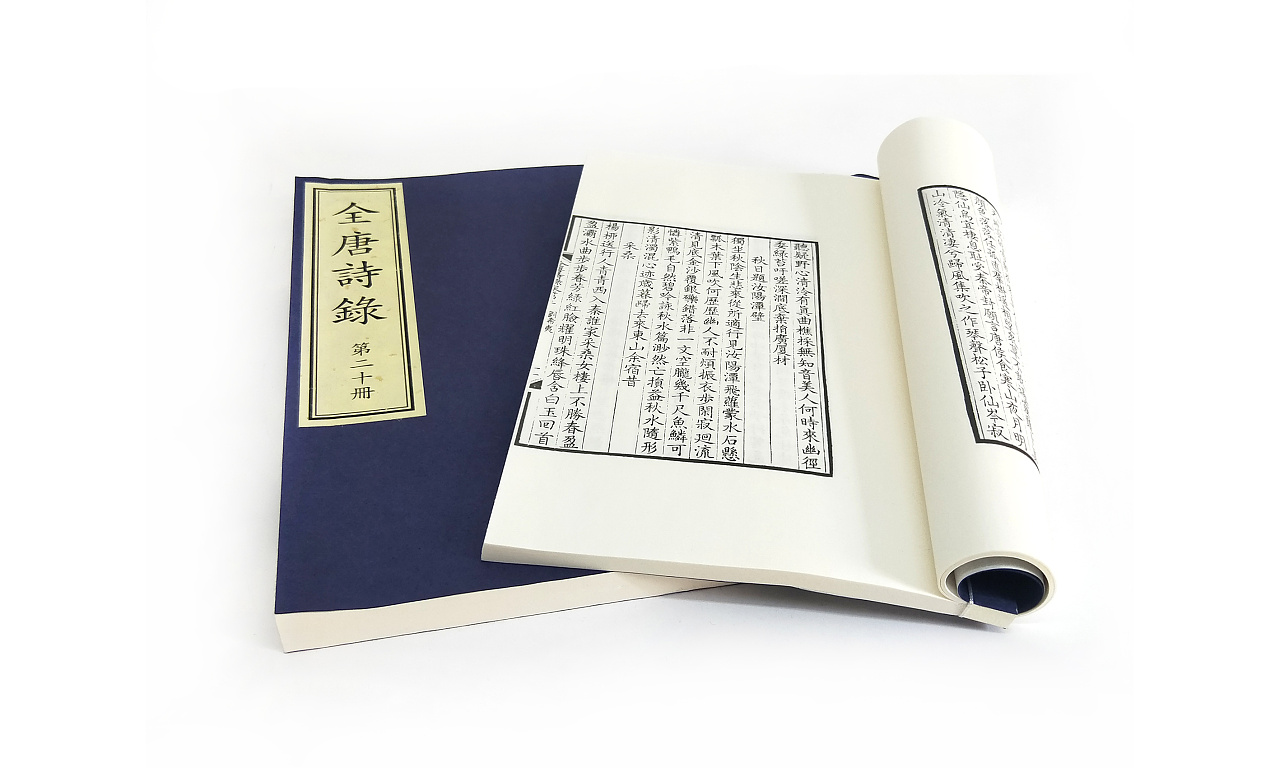 全唐詩錄
第二十冊
聽疑野心清泠有真曲樵採無知音美人何時來幽徑
委綠苔吁嗟深澗底棄捐廣廈材
秋日題汝陽潭壁
獨坐秋陰生悲來從所適行見汝陽潭飛蘿蒙水石懸
瓢木葉下風吹何歷歷幽人不耐煩振衣步閒寂迴流
清見底金沙覆銀礫錯落非一文空朧幾千尺魚鱗可
憐紫鴨毛自然碧吟詠秋水篇渺然亡損益秋水隨形
影清濁混心迹歲暮歸去來東山余宿昔
采桑
楊柳送行人青青西入秦誰家采桑女樓上不勝春盈
盈灞水曲步步春芳綠紅臉耀明珠絳唇含白玉回首
劉希夷
隱仙鳥宜棲息
山冷氣清清凄兮歸風集吹之作琴聲松子臥仙岑寂